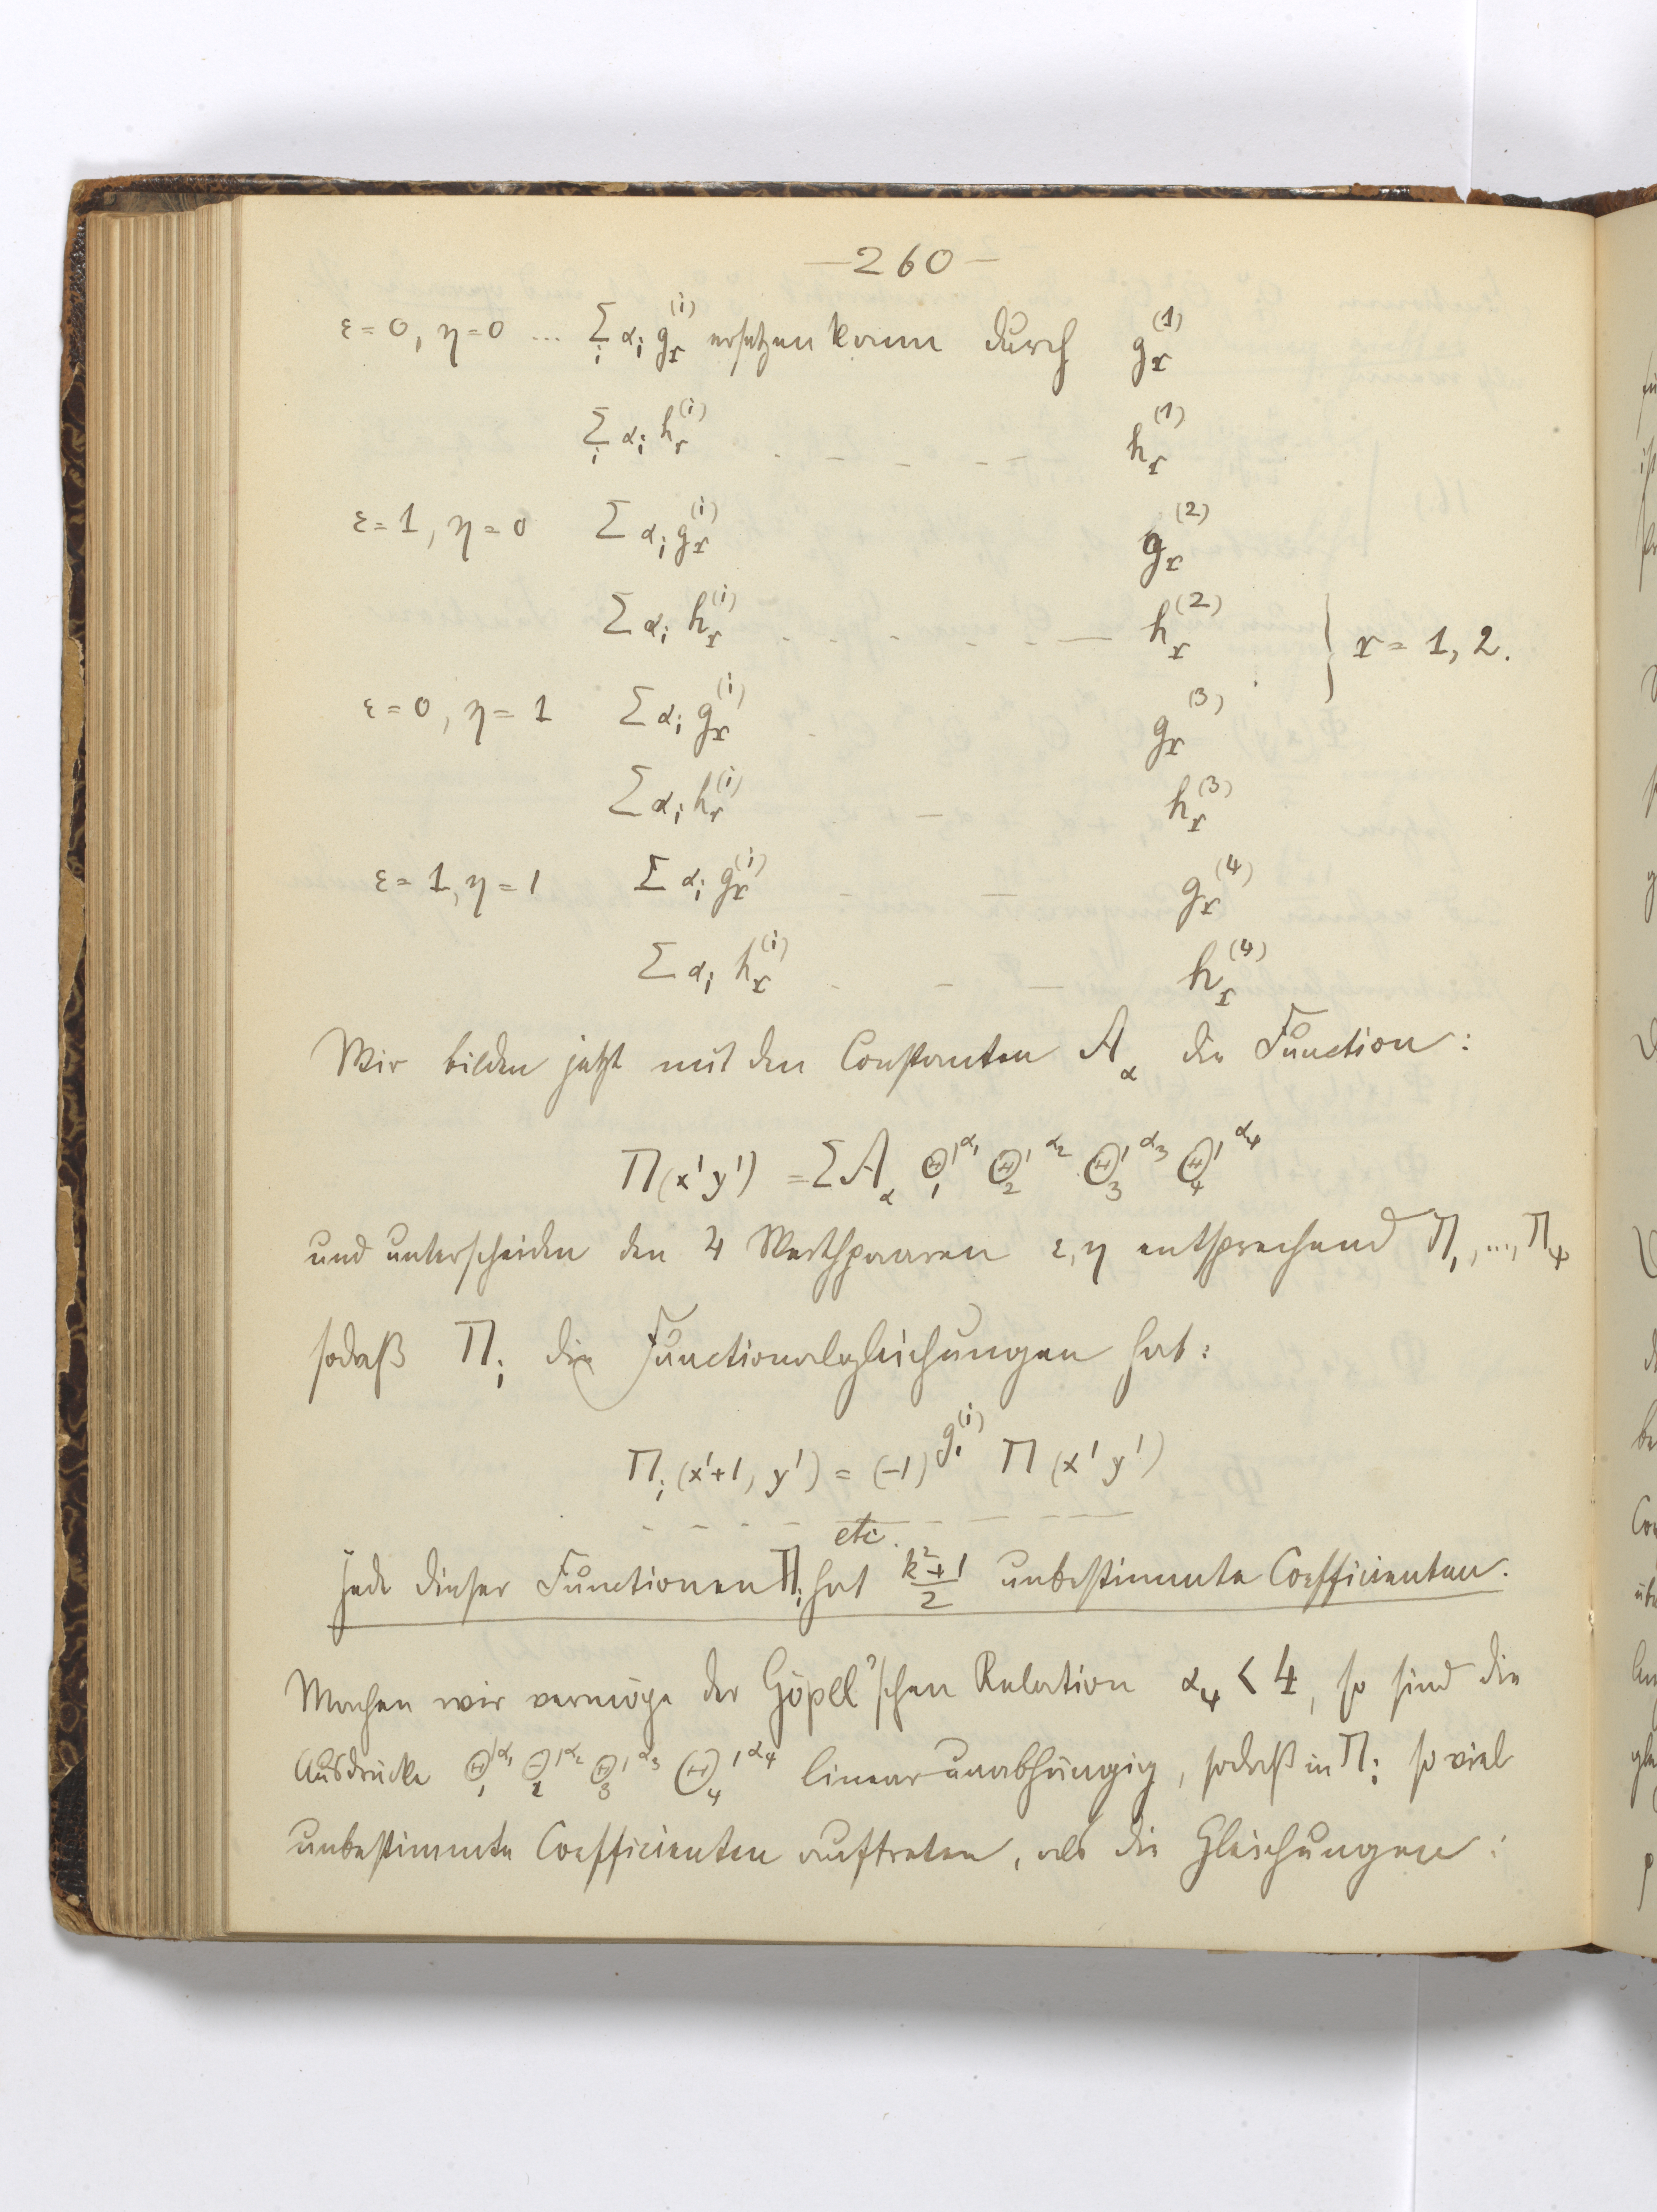 —260—
ε=0, η=0 ... Σ_i α_i g_r^(i) ersetzen kann durch g_r^(1)
Σ_i α_i h_r^(i) . – – – – h_r^(1)
ε=1, η=0 Σ α_i g_r^(i) g_r^(2)
Σ α_i h_r^(i) . – . – . – — h_r^(2) } r=1, 2.
ε=0, η=1 Σ α_i g_r^(i) . g_r^(3)
Σ α_i h_r^(i) – h_r^(3)
ε=1, η=1 Σ α_i g_r^(i) – — g_r^(4)
Σ α_i h_r^(i) . – — h_r^(4)
Wir bilden jetzt mit den Constanten A_α die Function:
Π(x'y') = Σ A_α Θ_1'^α_1 Θ_2'^α_2 Θ_3'^α_3 Θ_4'^α_4
und unterscheiden den 4 Werthpaaren ε, η entsprechend Π_1, ..., Π_4
sodaß Π_i die Functionalgleichungen hat:
Π_i (x'+1, y') = (-1)^g_1^(i) Π (x' y')
– – – – etc. – – – —
jede dieser Functionen Π_i hat (k²+1)/2 unbestimmte Coefficienten.
Machen wir vermöge der Göpel'schen Relation α_4 < 4, so sind die
Ausdrücke Θ_1'^α_1 Θ_2'^α_2 Θ_3'^α_3 Θ_4'^α_4 linear unabhängig, sodaß in Π_i so viel
unbestimmte Coefficienten auftreten, als die Gleichungen: